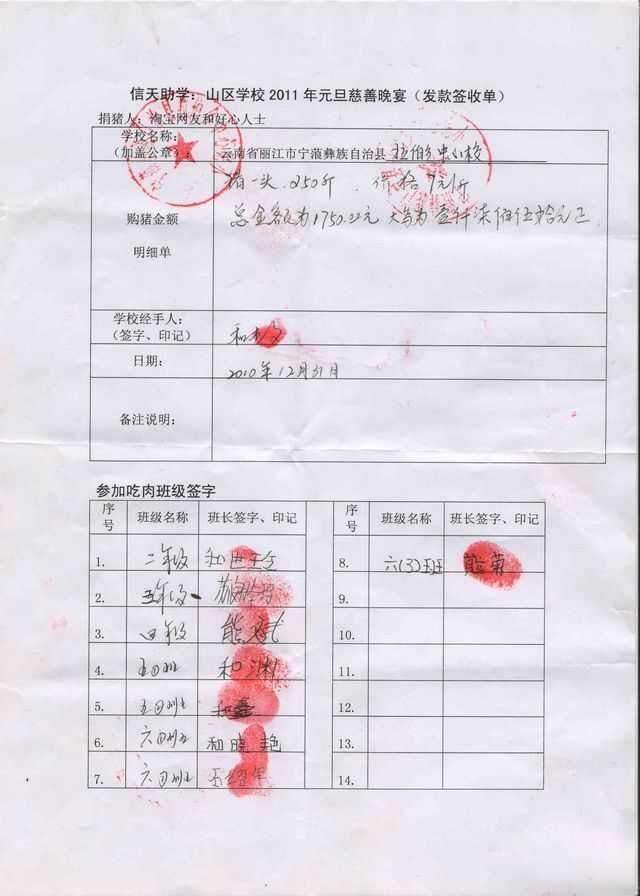 信天助学：山区学校 2011 年元旦慈善晚宴（发款签收单）
捐猪人：淘宝网友和好心人士
学校名称：
（加盖公章）：
云南省丽江市宁蒗彝族自治县 拉伯乡中心校
猪一头 250斤 . 价格 7元/斤
购猪金额
总金额为1750.00元 大写为 壹仟柒佰伍拾元正
明细单
学校经手人：
（签字、印记）
日期：
2010年12月31日
备注说明：
参加吃肉班级签字
序号 班级名称 班长签字、印记
班级名称 班长签字、印记
1. 二年级
8. 六(3)班 熊菊
2. 年级
9.
3. 四年级 熊
10.
4. 和渊
11.
5. 和鑫
12.
6. 和晓艳
13.
7.
14.